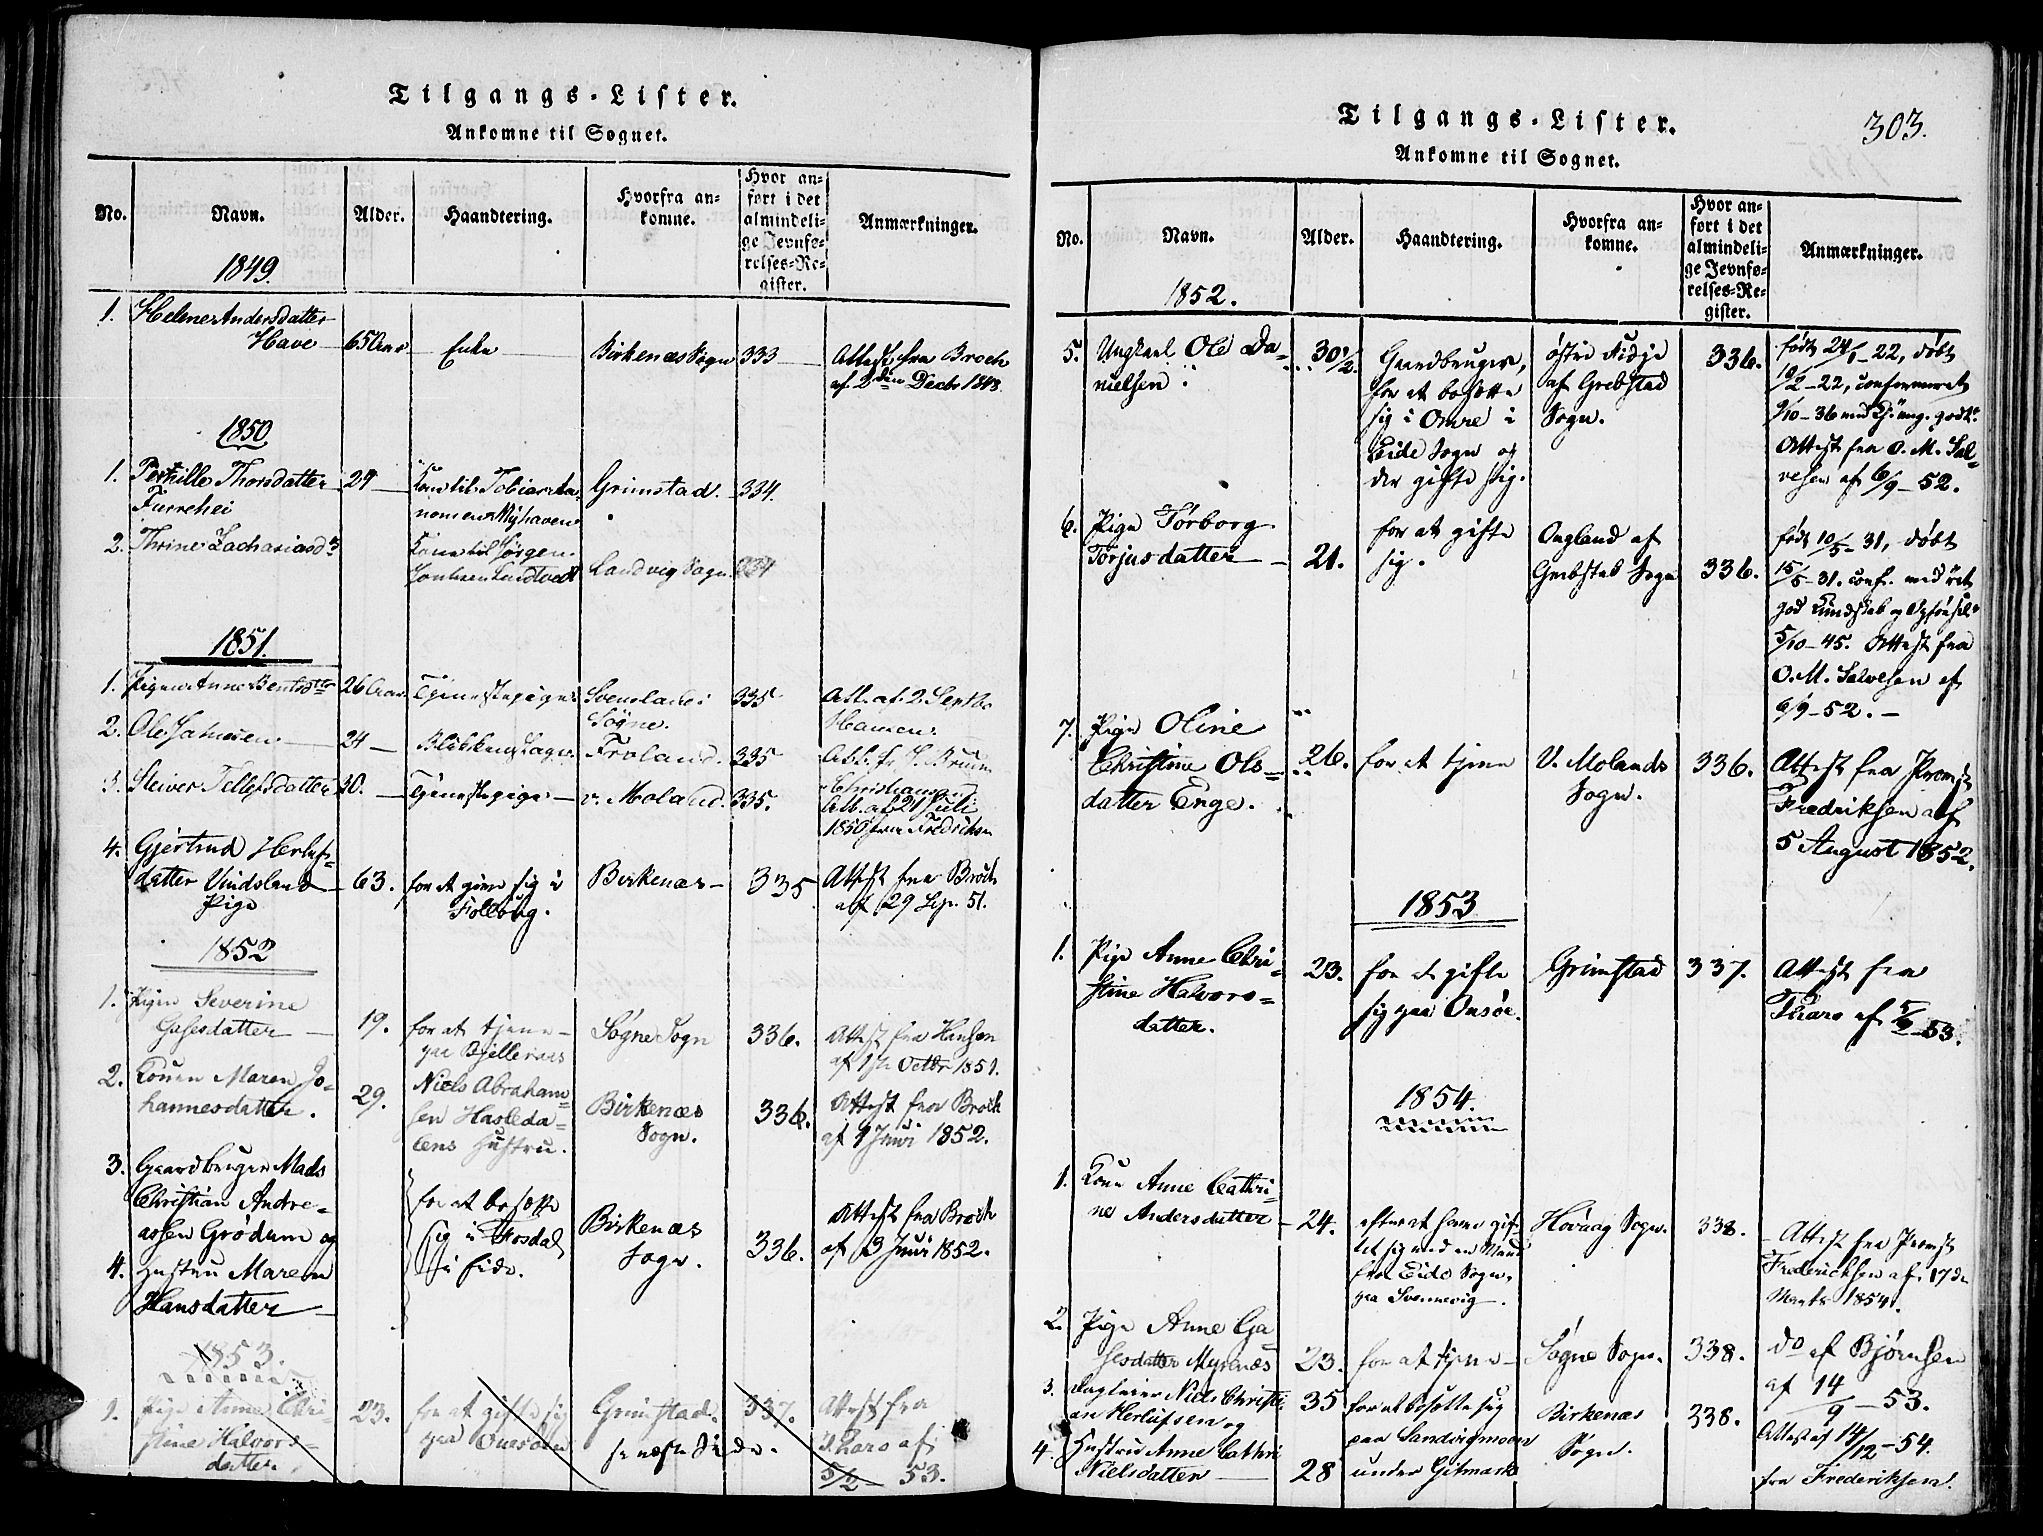 Tilgangs-Lister.
Ankomne til Sognet.
No.
Navn.
Alder.
Haandtering.
Hvorfra an-
komne.
Hvor an-
ført i det
almindeli-
ge Jevnfø-
relses-Re-
gister.
Anmærkninger.
1849.
1. Helene Andersdatter
Have 65 Aar Enke Birkenæs Sogn 333 Attest fra Broch
af 2den Decbr 1848.
1850
1. Pernille Thorsdatter 29 Kone til Tobias Aa- Grimstad. 334.
Furrehei
2. Thrine Zachariasd Kone til Jørgen
Landvig Sogn. 334
1851.
1. Pigen Anne 26 Aar Tjenestepige 335 Att. af 2 Septbr
Søgne. Hansen.
2. Ole 24 Froland. 335
3. Tellefsdatter 30. Tjenestepige v. Moland. 335. Att. af 21 Juli
1850 fra Fredriksen
4. Gjertrud Herlufs-
datter Vindsland 63. for at give sig i Birkenæs 335 Attest fra Broch
Pige af 29 Sep. 51.
1852
1. Pigen Severine
datter 19. for at tjene Søgne Sogn 336. Attest fra Hansen
paa af 1ste Octbr 1851.
2. Konen Maren Jo-
hannesdatter. 29. Niels Abraham-
sen Hasleda-
lens Hustru. Birkenæs
Sogn. 336. Attest fra Broch
af 1 Juni 1852.
3. Gaardbruger Mads
Christian Andre-
assen Grødum og
4. Hustru Maren
Hansdatter
for at bosætte
sig i Rosdal
i Eide. Birkenæs
Sogn. 336. Attest fra Broch
af 3 Juni 1852.
1853.
1. Pige Anne Chri-
stine Halvors-
datter. 23. for at gifte sig
paa Onsøen Grimstad. 337. Attest fra
Tharo af
5/2 53.
se næste Side.
Tilgangs-Lister.
303.
Ankomne til Sognet.
No.
Navn.
Alder.
Haandtering.
Hvorfra an-
komne.
Hvor an-
ført i det
almindeli-
ge Jevnfø-
relses-Re-
gister.
Anmærkninger.
1852.
5. Ungkarl Ole Da-
nielsen 30 1/2 Gaardbruger,
for at bosætte
sig i Omre i
Eide Sogn og
der gifte sig. østre
af Grebstad
Sogn. 336. født 24/1-22, døbt
10/2-22, confirmeret
9/10-36 med
Attest fra O. M. Sal-
vesen af 6/9-52.
6. Pige Torborg
Torjusdatter 21. for at gifte
sig. Ougland af
Grebstad Sogn 336. født 10/5-31, døbt
15/5-31. conf. med
god Kundskab og Opførsel
5/10-45. Attest fra
O. M. Salvesen af
6/9-52.
7. Pige Oline
Christine Ols-
datter Enge. 26. for at tjene V. Molands
Sogn. 336. Attest fra Provst
Fredriksen af
5 August 1852.
1853
1. Pige Anne Chri-
stine Halvors-
datter. 23. for at gifte
sig paa Onsøe. Grimstad 337. Attest fra
Tharo af 5/2-53.
1854.
1. Kone Anne Cathri-
ne Andersdatter 24. efter at have gif-
tet sig med en Mand
fra Eide Sogn,
paa Svennevig. Høvaag Sogn. 338. Attest fra Provst
Fredericksen af 17de
Marts 1854.
2. Pige Anne Ga-
sesdatter Myrenæs 23. for at tjene Søgne Sogn. 338. do af Bjørnsen
af 14/9-53.
3. Niels Christi-
an Herlufsen og 35 for at bosætte sig
paa Sandvigmoen
under Gitmark Birkenæs
Sogn. 338. Attest af 14/12-54.
fra Frederiksen.
4. Hustru Anne Cathri
Nielsdatter 28